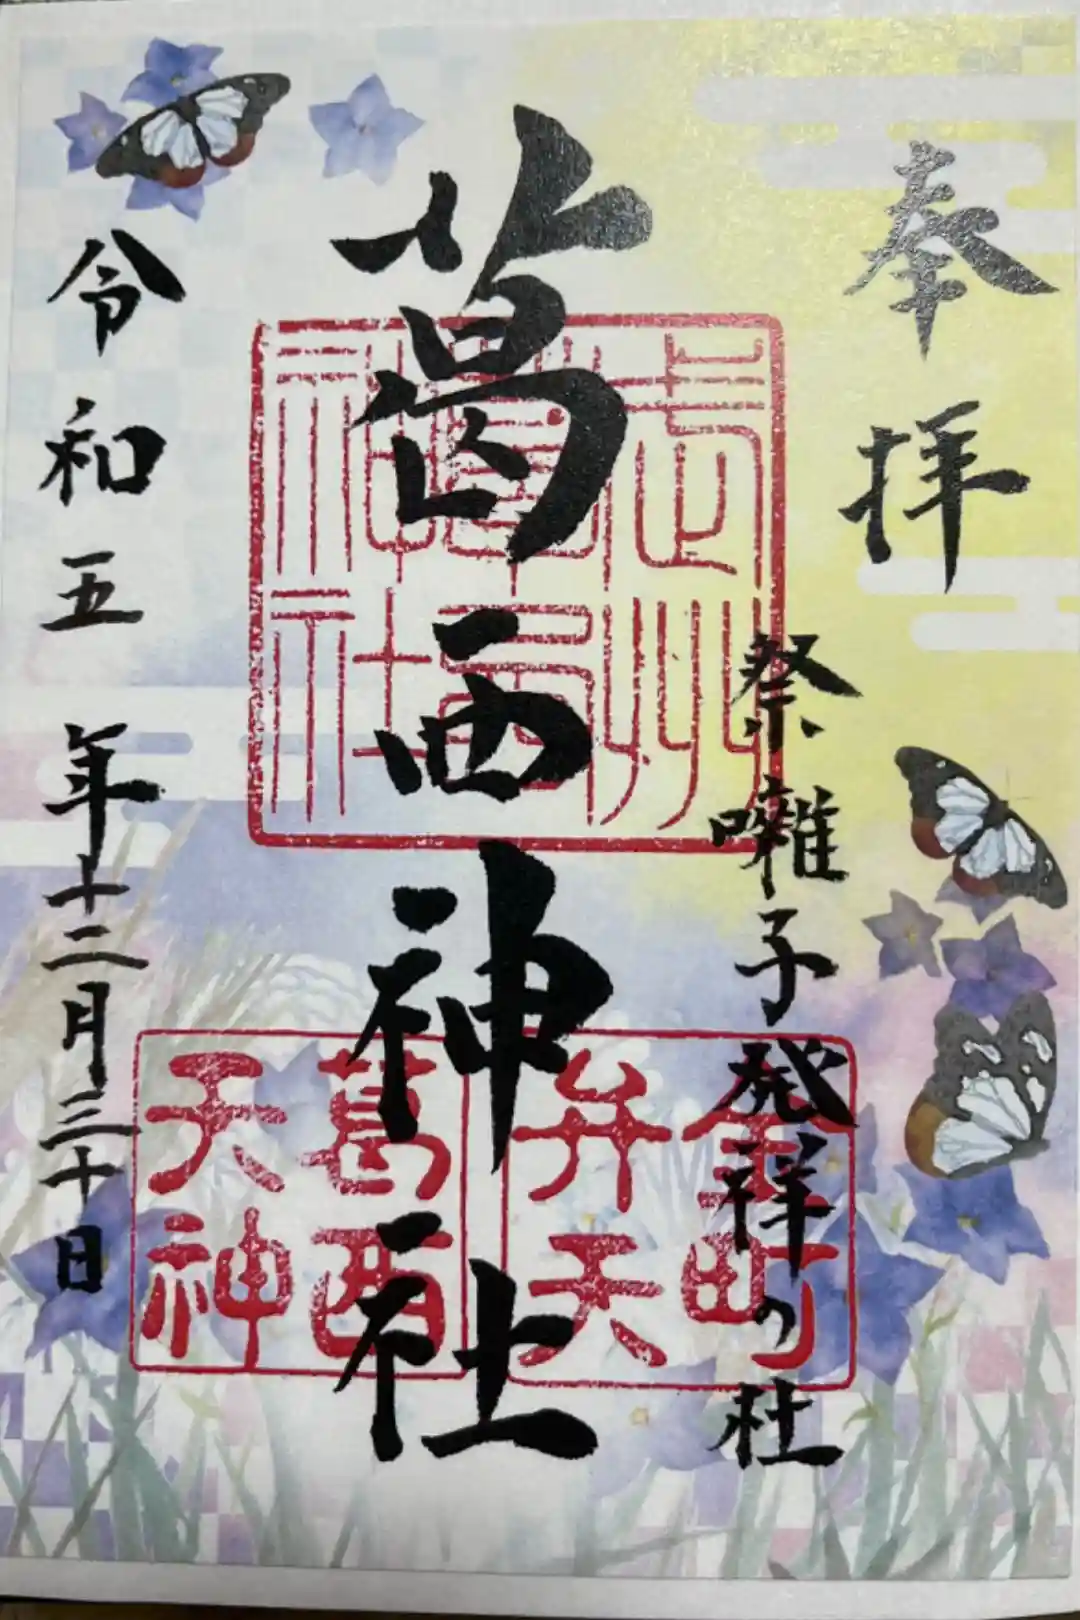 奉拝
祭り囃子発祥の社
葛西神社
令和五年十二月三十日
武州
葛西
神社
金町
弁天
葛西
天神